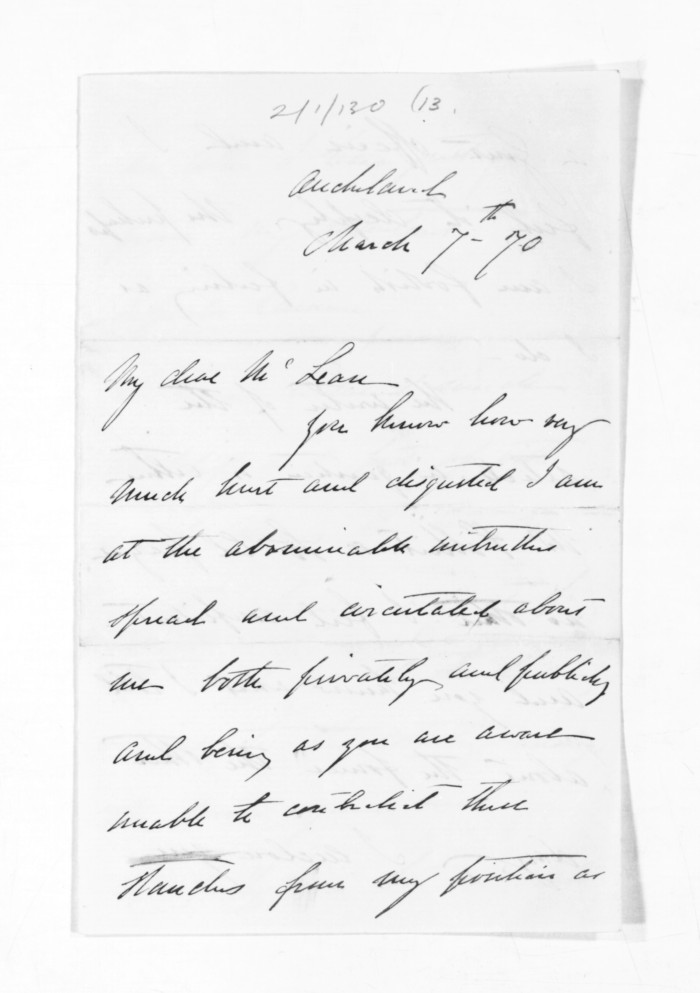 2/1/130 (13.
Auckland
March 7th 70
My dear McLean
you know how very
much hurt and disgusted I am
at the abominable untruths
spread and circulated about
me both privately and publicly
and being as you are aware
unable to contradict these
slanders from my position as